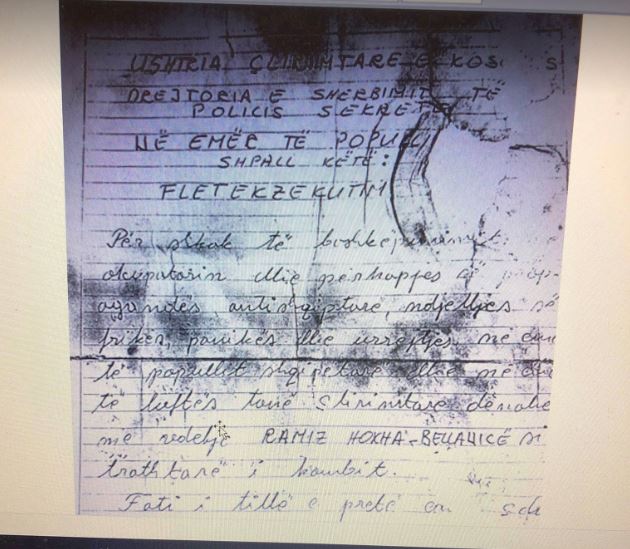 USHTRIA ÇLIRIMTARE E KOS S
DREJTORIA E SHERBIMIT TË
POLICIS SEKRETE
NË EMËR TË POPULL
SHPALL KËTË:
FLETEKZEKUTIM
Për shkak të bashkepunimit
okupatorin dhe përhapjes së prop
agandës antishqiptare, ndjelljes së
frikës, panikës dhe urrejtjes në
të popullit shqiptare dhe në
të luftës tonë çlirimtare dënohe
me vdekje RAMIZ HOXHA-BELLANICË si
trathtarë i kombit.
Fati i tillë e pretë